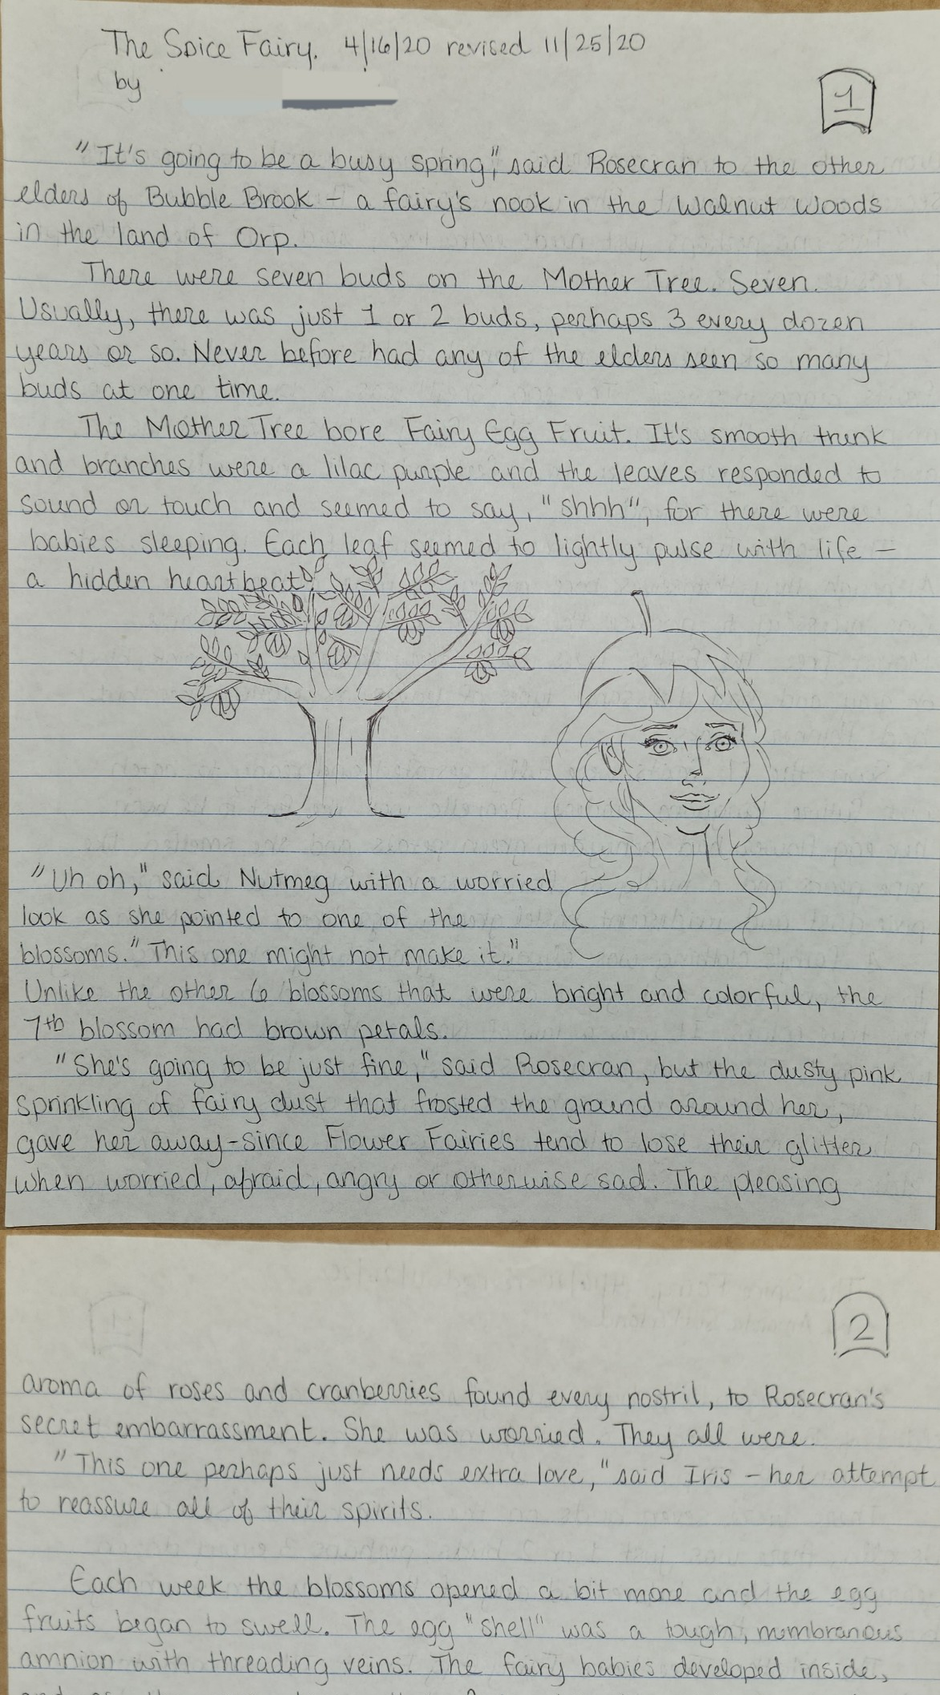 The Spice Fairy. 4/16/20 revised 11/25/20
by
1
"It's going to be a busy spring," said Rosecran to the other
elders of Bubble Brook – a fairy's nook in the Walnut Woods
in the land of Orp.
There were seven buds on the Mother Tree. Seven.
Usually, there was just 1 or 2 buds, perhaps 3 every dozen
years or so. Never before had any of the elders seen so many
buds at one time.
The Mother Tree bore Fairy Egg Fruit. It's smooth trunk
and branches were a lilac purple and the leaves responded to
sound or touch and seemed to say, "shhh", for there were
babies sleeping. Each leaf seemed to lightly pulse with life –
a hidden heartbeat.
"Uh oh," said Nutmeg with a worried
look as she pointed to one of the
blossoms. "This one might not make it."
Unlike the other 6 blossoms that were bright and colorful, the
7th blossom had brown petals.
"She's going to be just fine," said Rosecran, but the dusty pink
sprinkling of fairy dust that frosted the ground around her,
gave her away-since Flower Fairies tend to lose their glitter
when worried, afraid, angry or otherwise sad. The pleasing
2
aroma of roses and cranberries found every nostril, to Rosecran's
secret embarrassment. She was worried. They all were.
"This one perhaps just needs extra love," said Iris – her attempt
to reassure all of their spirits.
Each week the blossoms opened a bit more and the egg
fruits began to swell. The egg "shell" was a tough, membranous
amnion with threading veins. The fairy babies developed inside,